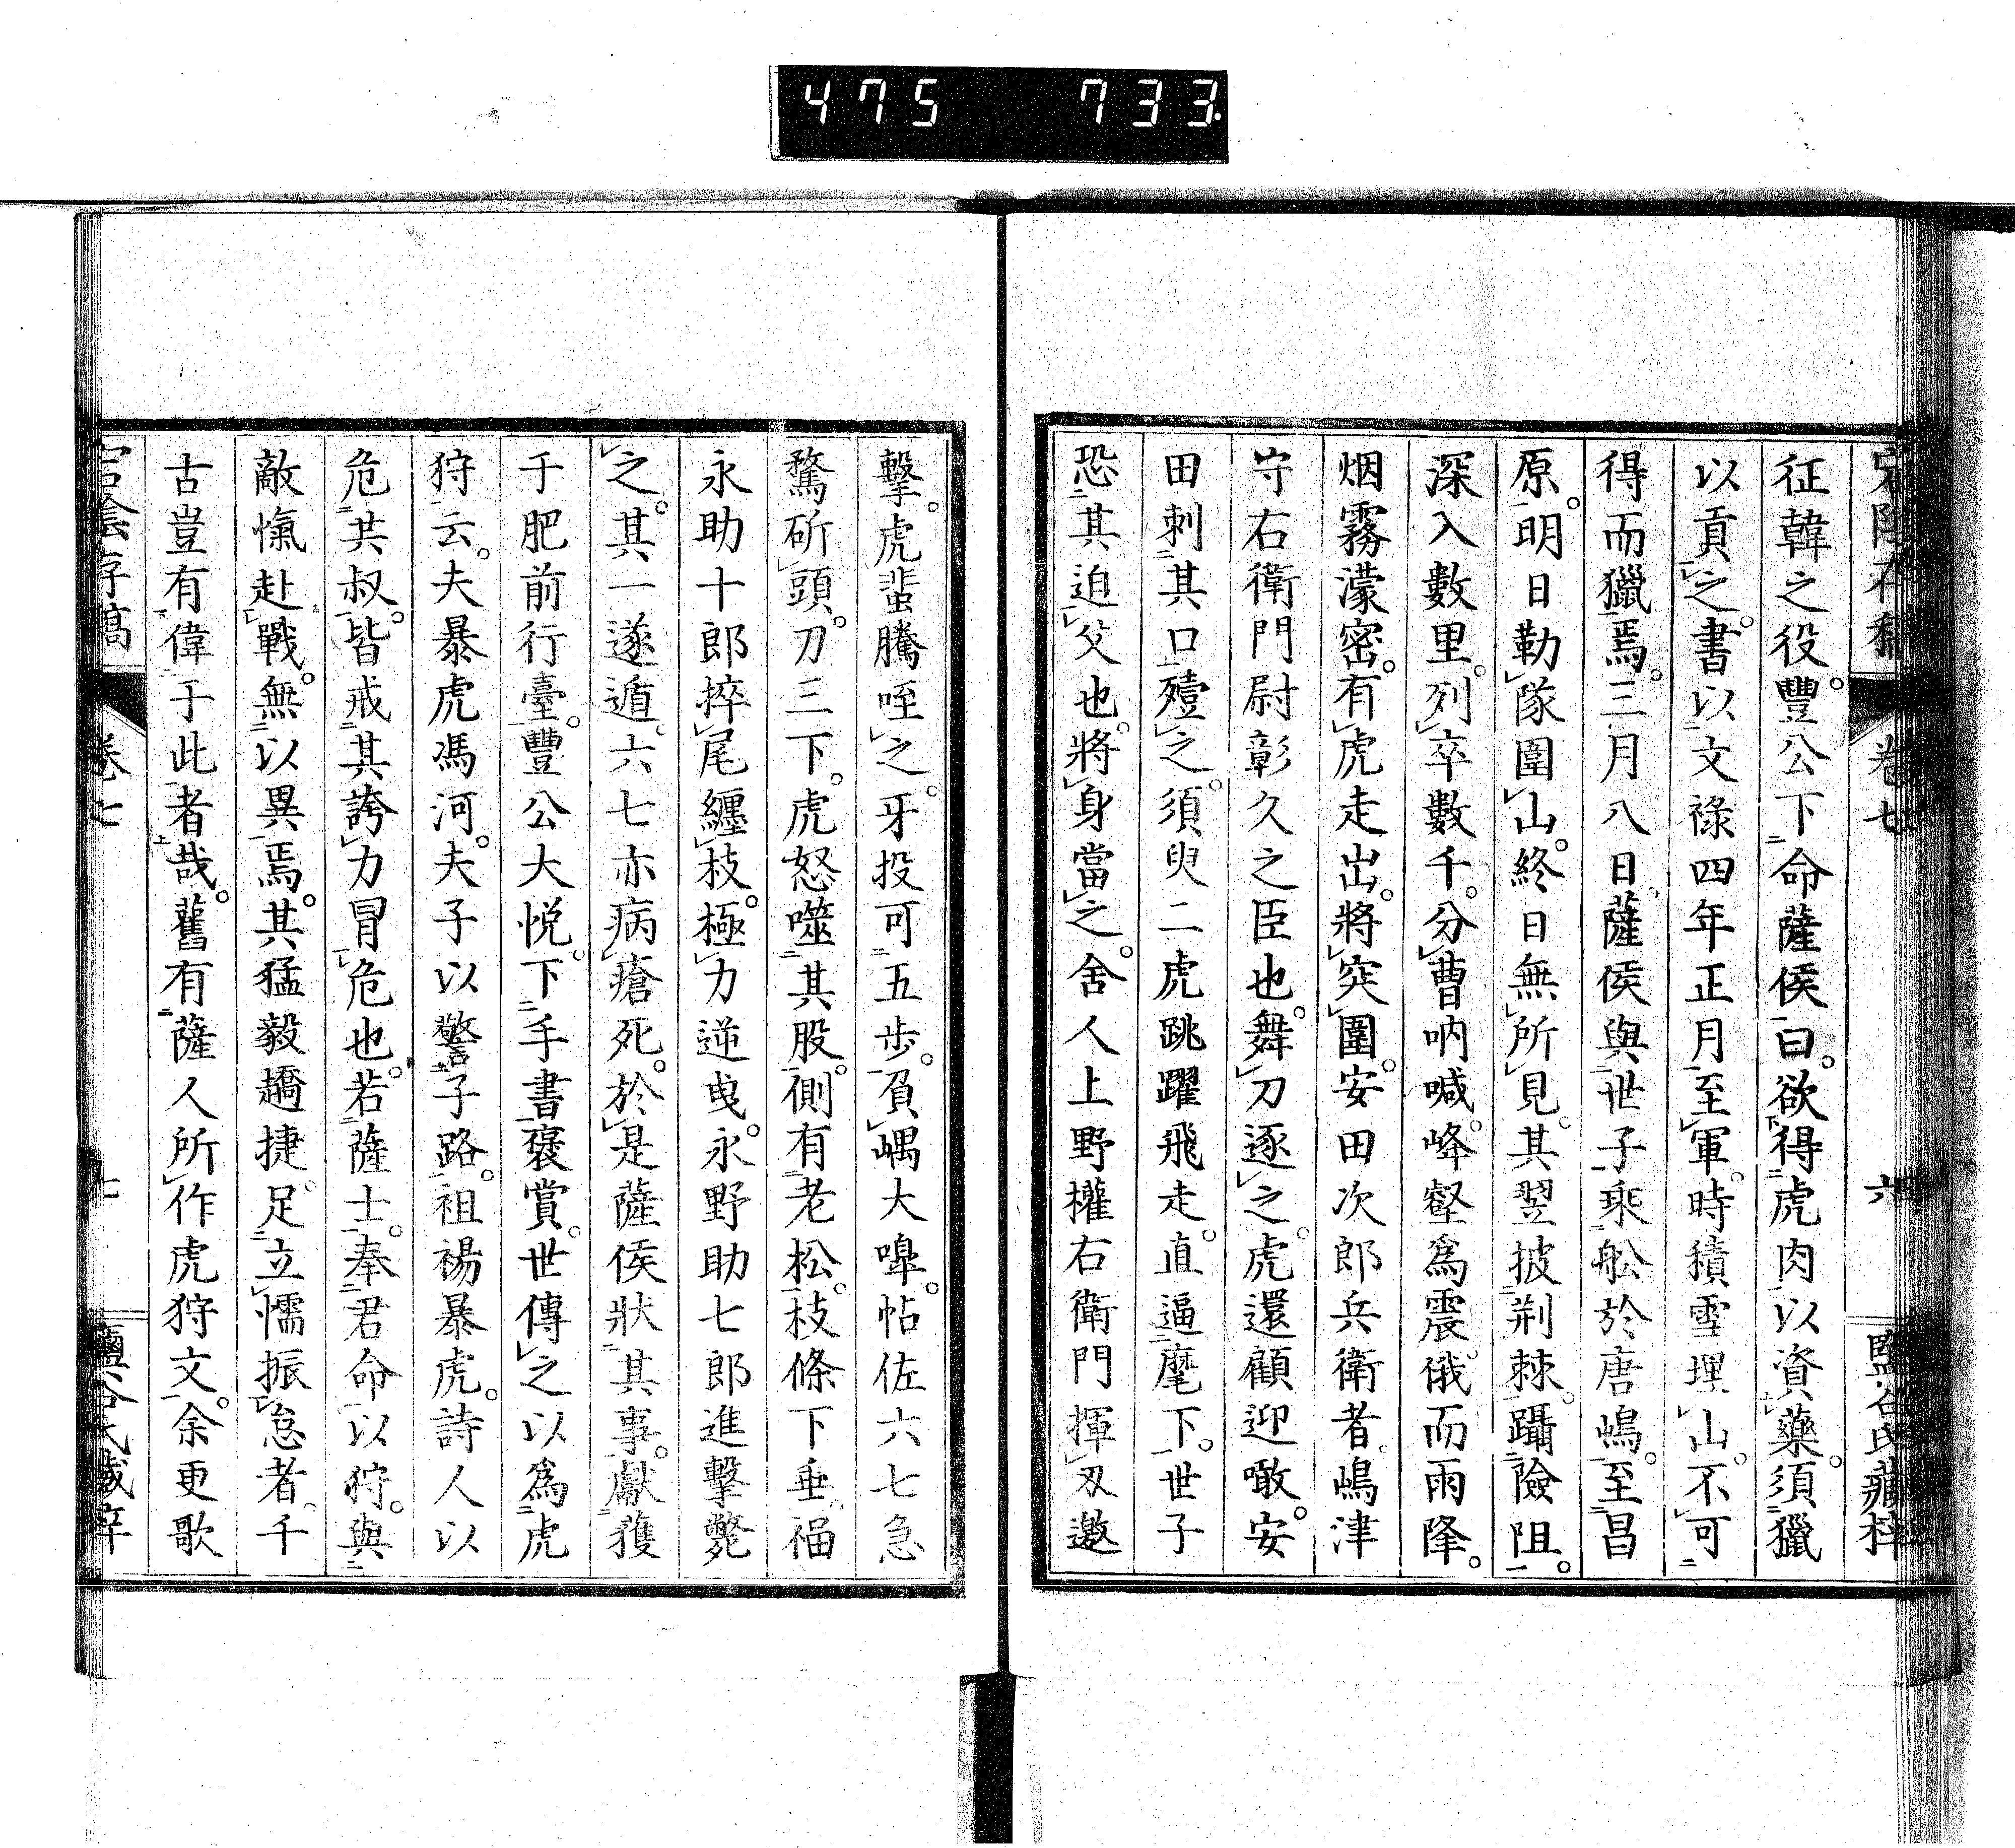 475 733
卷七 六
征韓之役。豐公下命薩侯曰。欲得虎肉以資藥。須獵
以貢之。書以文祿四年正月至軍。時積雪埋山。不可
得而獵焉。三月八日。薩侯與世子乘舩於唐嶋。至昌
原。明日勒隊圍山。終日無所見。其翌披荊棘。躡險阻。
深入數里。列卒數千。分曹吶喊。峰壑爲震。俄而雨降。
烟霧濛密。有虎走出。將突圍。安田次郎兵衛者。嶋津
守右衛門尉彰久之臣也。舞刀逐之。虎還顧迎噉。安
田刺其口殪之。須臾二虎跳躍飛走。直逼麾下。世子
恐其迫父也。將身當之。舍人上野權右衛門揮刃邀
擊。虎蜚騰咥之。牙投可五步。負嵎大嘷。帖佐六七急
騖斫頭。刀三下。虎怒噬其股。側有老松。枝條下垂。福
永助十郎捽尾纏枝。極力逆曵。永野助七郎進擊斃
之。其一遂遁。六七亦病瘡死。於是薩侯狀其事。獻獲
于肥前行臺。豐公大悅。下手書褒賞。世傳之以爲虎
狩云。夫暴虎馮河。夫子以警子路。袒裼暴虎。詩人以
危共叔。皆戒其誇力冒危也。若薩士。奉君命以狩。與
敵愾赴戰。無以異焉。其猛毅趫捷。足立懦振怠者。千
古豈有偉于此者哉。舊有薩人所作虎狩文。余更歌
宕陰存稿 卷七 七